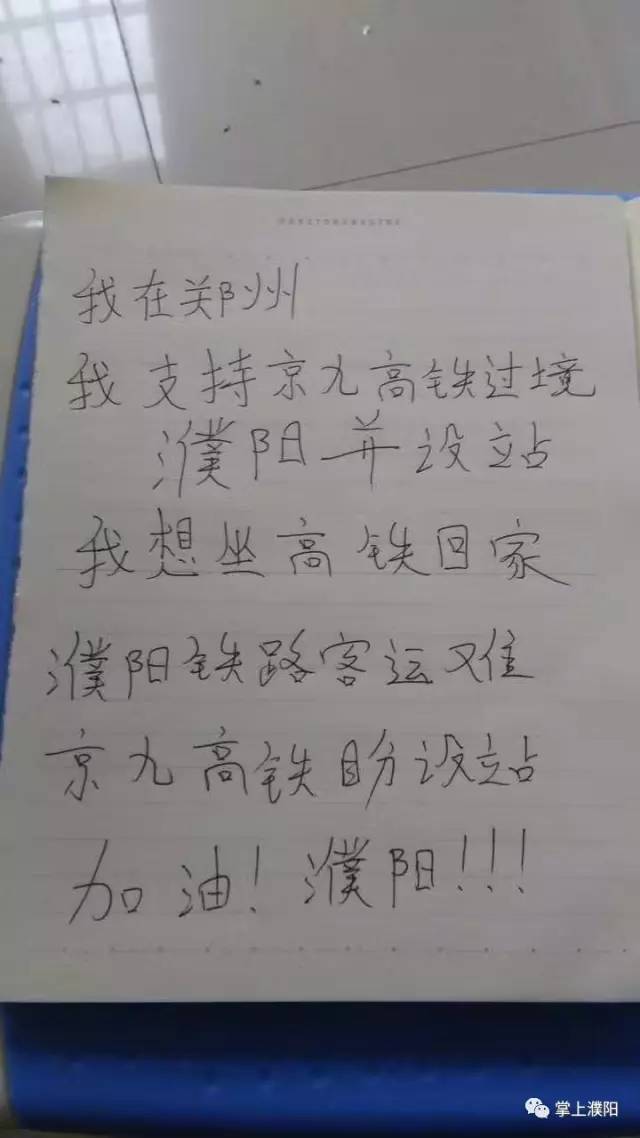 我在郑州
我支持京九高铁过境
濮阳并设站
我想坐高铁回家
濮阳铁路客运难
京九高铁盼设站
加油！濮阳！！！
掌上濮阳